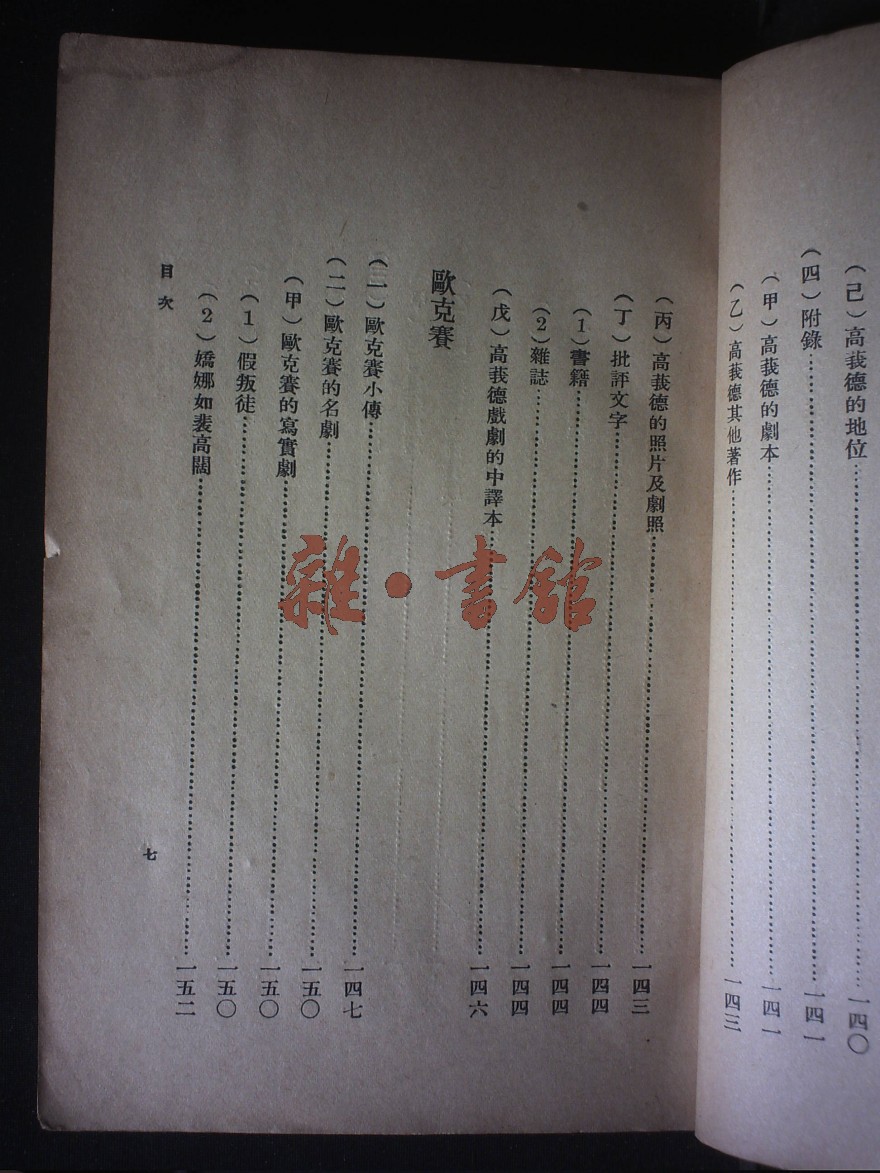 （己）高莪德的地位……一四〇
（四）附錄……一四一
（甲）高莪德的劇本……一四一
（乙）高莪德其他著作……一四三
（丙）高莪德的照片及劇照……一四三
（丁）批評文字……一四四
（1）書籍……一四四
（2）雜誌……一四四
（戊）高莪德戲劇的中譯本……一四六
歐克賽
（一）歐克賽小傳……一四七
（二）歐克賽的名劇……一五〇
（甲）歐克賽的寫實劇……一五〇
（1）假叛徒……一五〇
（2）嬌娜如裴高闊……一五二
目次
七
雜·書館